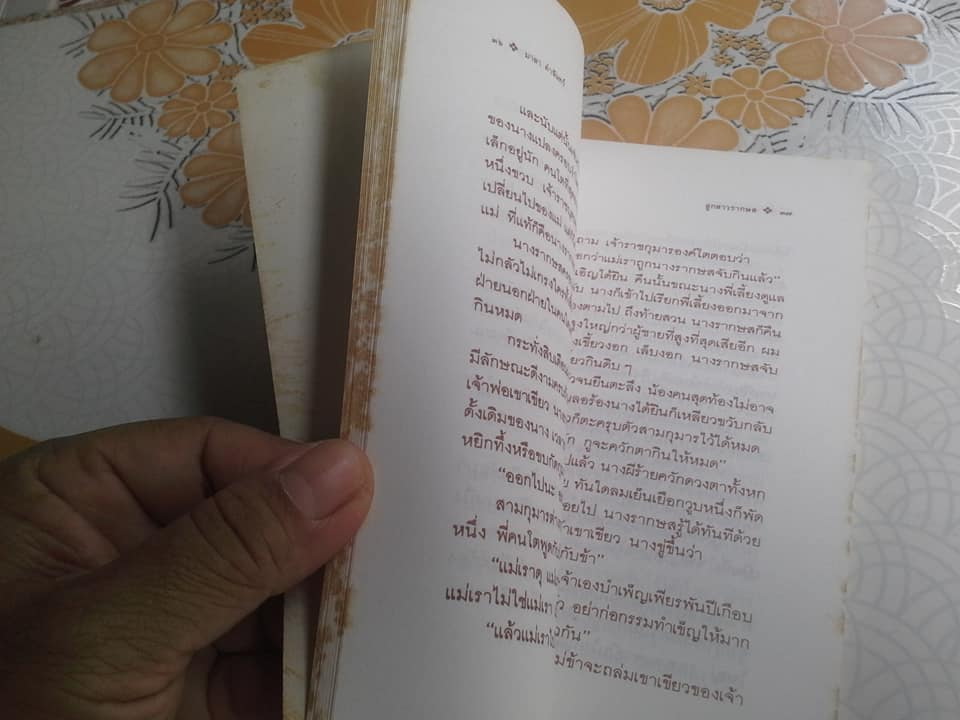 ๓๖ ❖ มาลา คำจันทร์
และนับแต่นั้น
ของนางแปลงครอบ
เล็กอยู่นัก คนใด
หนึ่งขวบ เจ้าราช
เปลี่ยนไปของแม่
แม่ ที่แท้ก็คือนาง
นางรากษส
ไม่กลัวไม่เกรงใคร
ฝ่ายนอกฝ่ายใน
กินหมด
กระทั่งสิบเดือน
มีลักษณะดีงาม
เจ้าพ่อเขาเขียว
ดั้งเดิมของนาง
หยิกทึ้งหรือขบกัด
“ออกไปนะ
สามกุมาร
หนึ่ง พี่คนโตพูด
“แม่เราดุ
แม่เราไม่ใช่แม่เรา
“แล้วแม่เรา
ลูกสาวรากษส ❖ ๓๗
ถาม เจ้าราชกุมารองค์โตตอบว่า
อกว่าแม่เราถูกนางรากษสจับกินแล้ว”
เอิญได้ยิน คืนนั้นขณะนางพี่เลี้ยงดูแล
บ นางก็เข้าไปเรียกพี่เลี้ยงออกมาจาก
องตามไป ถึงท้ายสวน นางรากษสก็คืน
งใหญ่กว่าผู้ชายที่สูงที่สุดเสียอีก ผม
งเขี้ยวงอก เล็บงอก นางรากษสจับ
ยวกินดิบ ๆ
วจนยืนตะลึง น้องคนสุดท้องไม่อาจ
ผลอร้องนางได้ยินก็เหลียวขวับกลับ
วก็ตะครุบตัวสามกุมารไว้ได้หมด
ก กูจะควักตากินให้หมด”
ปแล้ว นางผีร้ายควักดวงตาทั้งหก
ทันใดลมเย็นเยือกวูบหนึ่งก็พัด
อยไป นางรากษสรู้ได้ทันทีด้วย
เขาเขียว นางขู่ขึ้นว่า
กับข้า”
จ้าเองบำเพ็ญเพียรพันปีเกือบ
ว อย่าก่อกรรมทำเข็ญให้มาก
วกัน”
ม่ข้าจะถล่มเขาเขียวของเจ้า